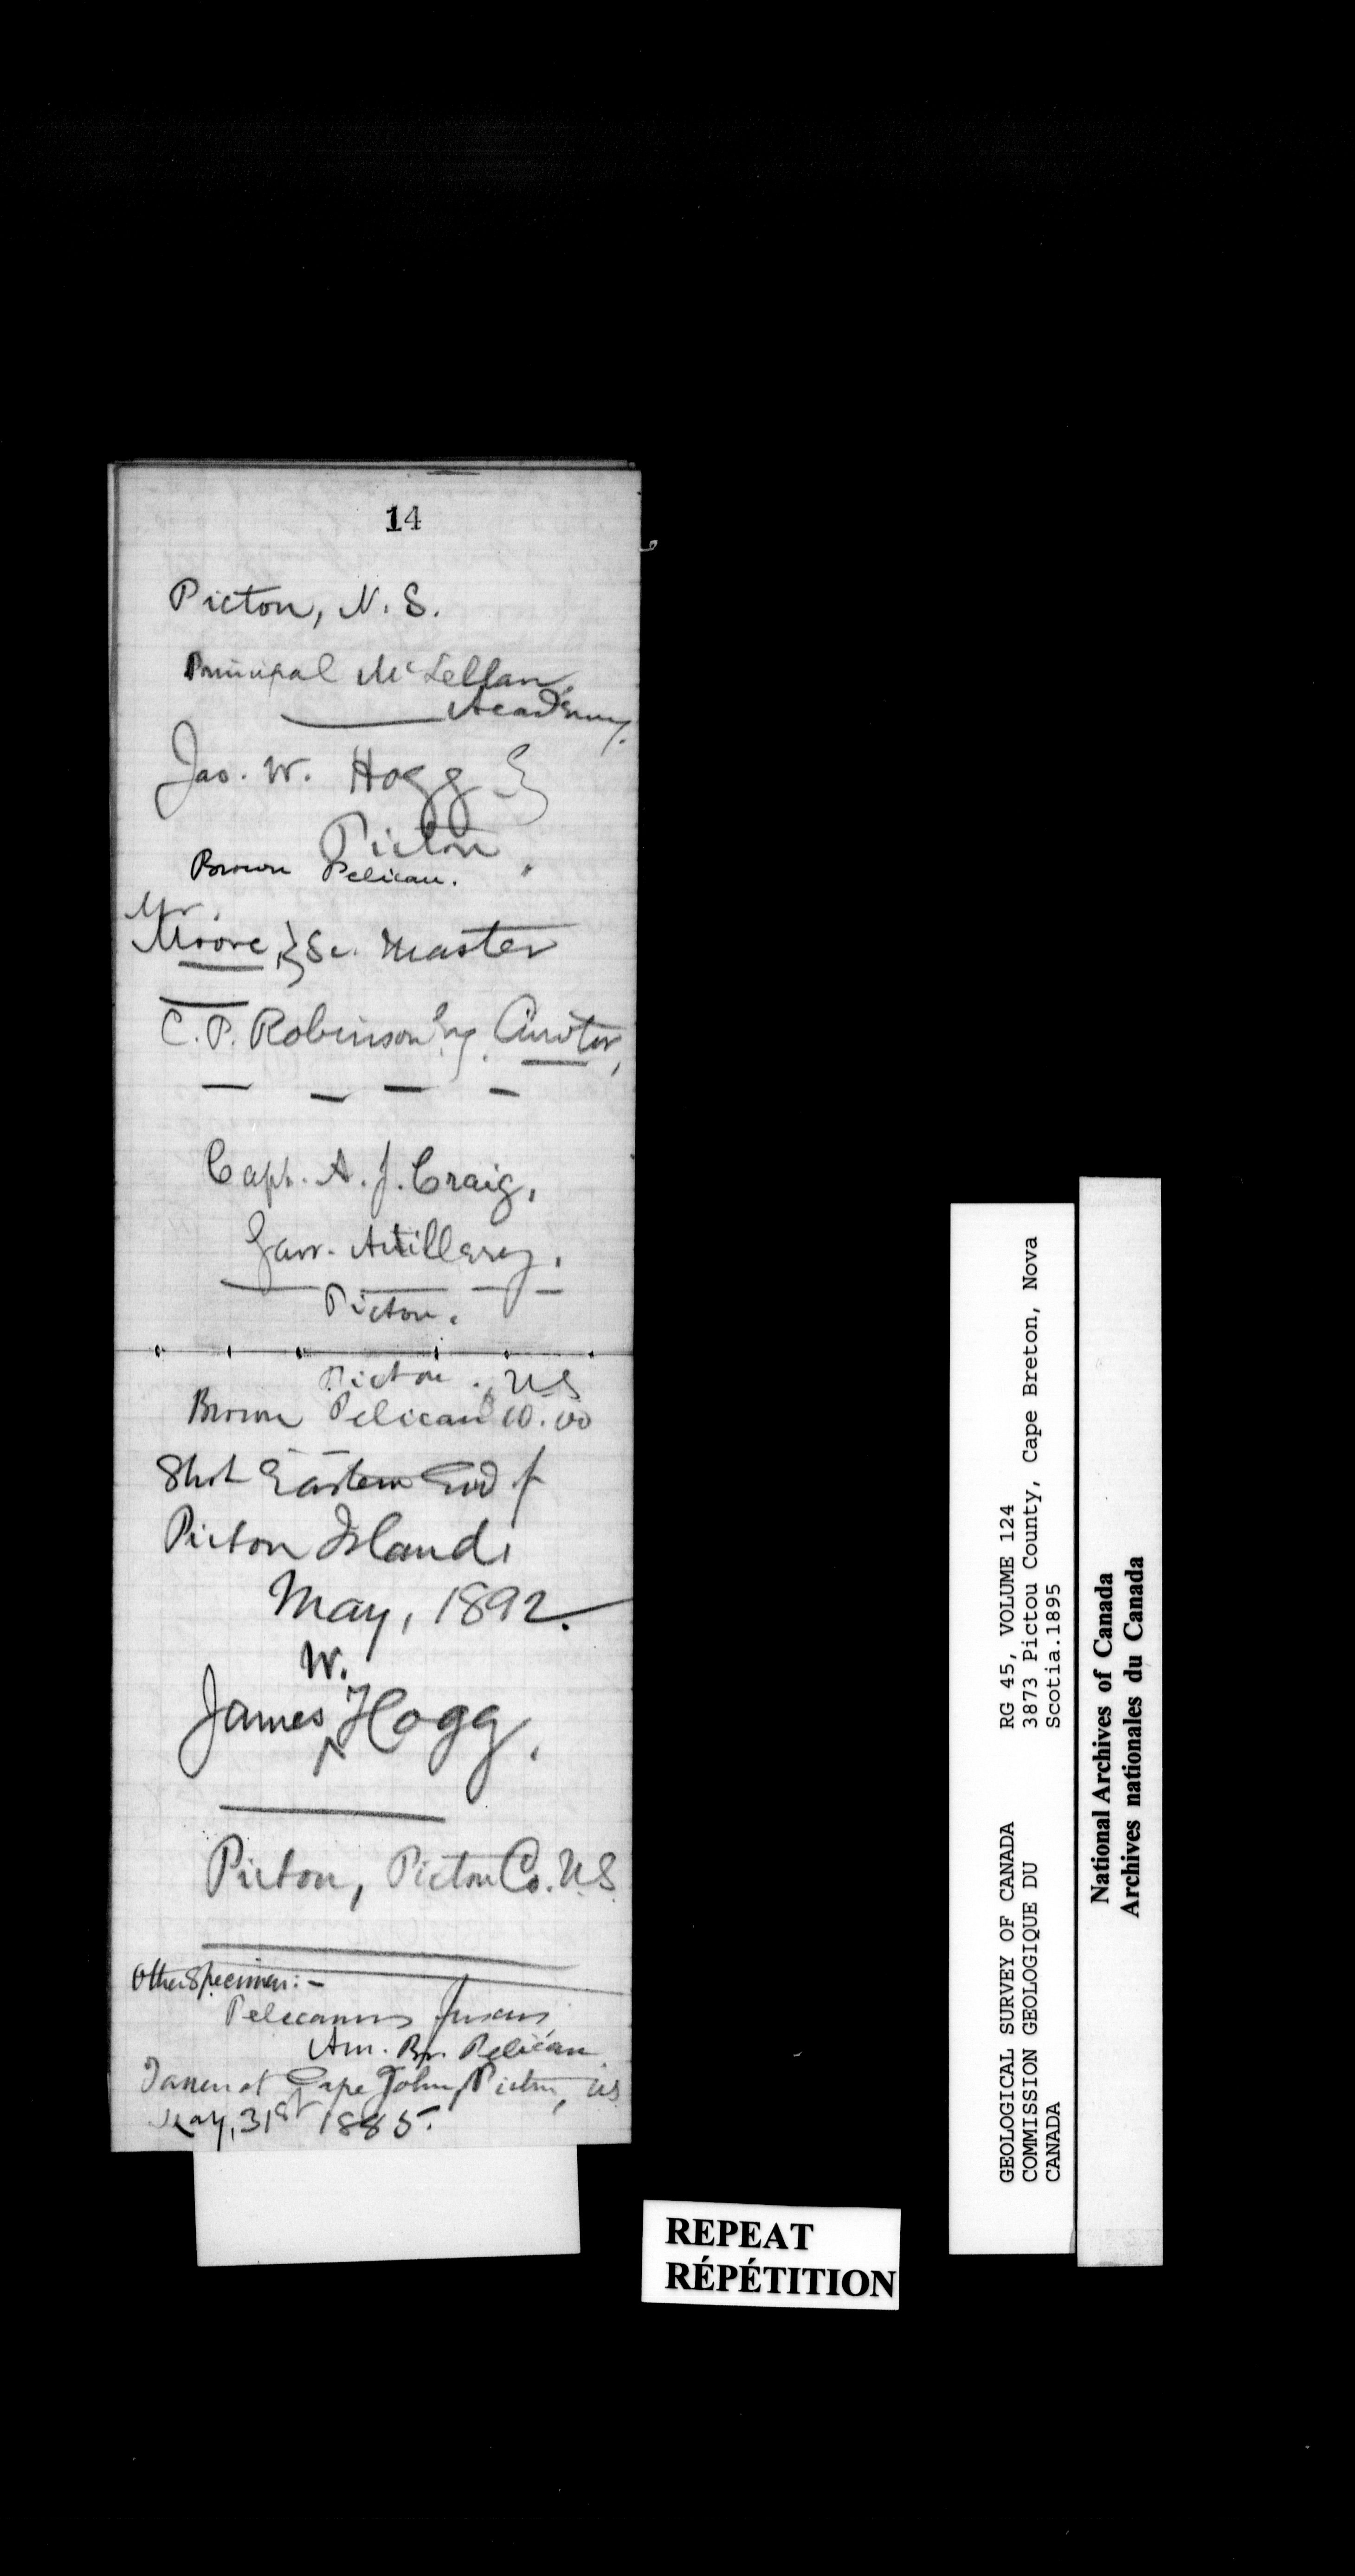 14
Pictou, N. S.
Principal McLellan,
Academy.
Jas. W. Hogg
Pictou.
Brown Pelican.
Mr.
Moore, Sc. Master
C. P. Robinson Esq. Curator,
Capt. A. J. Craig,
Garr. Artillery.
Pictou.
Pictou, N.S
Brown Pelican $10.00
Shot Eastern End of
Pictou Island,
May, 1892.
W.
James ^ Hogg,
Pictou, Pictou Co. N.S.
Other Specimen:-
Pelecanus fuscus,
Am. Br. Pelican
Taken at Cape John, Pictou, NS
May, 31st 1885.
REPEAT
RÉPÉTITION
GEOLOGICAL SURVEY OF CANADA
COMMISSION GEOLOGIQUE DU
CANADA
RG 45, VOLUME 124
3873 Pictou County, Cape Breton, Nova
Scotia.1895
National Archives of Canada
Archives nationales du Canada